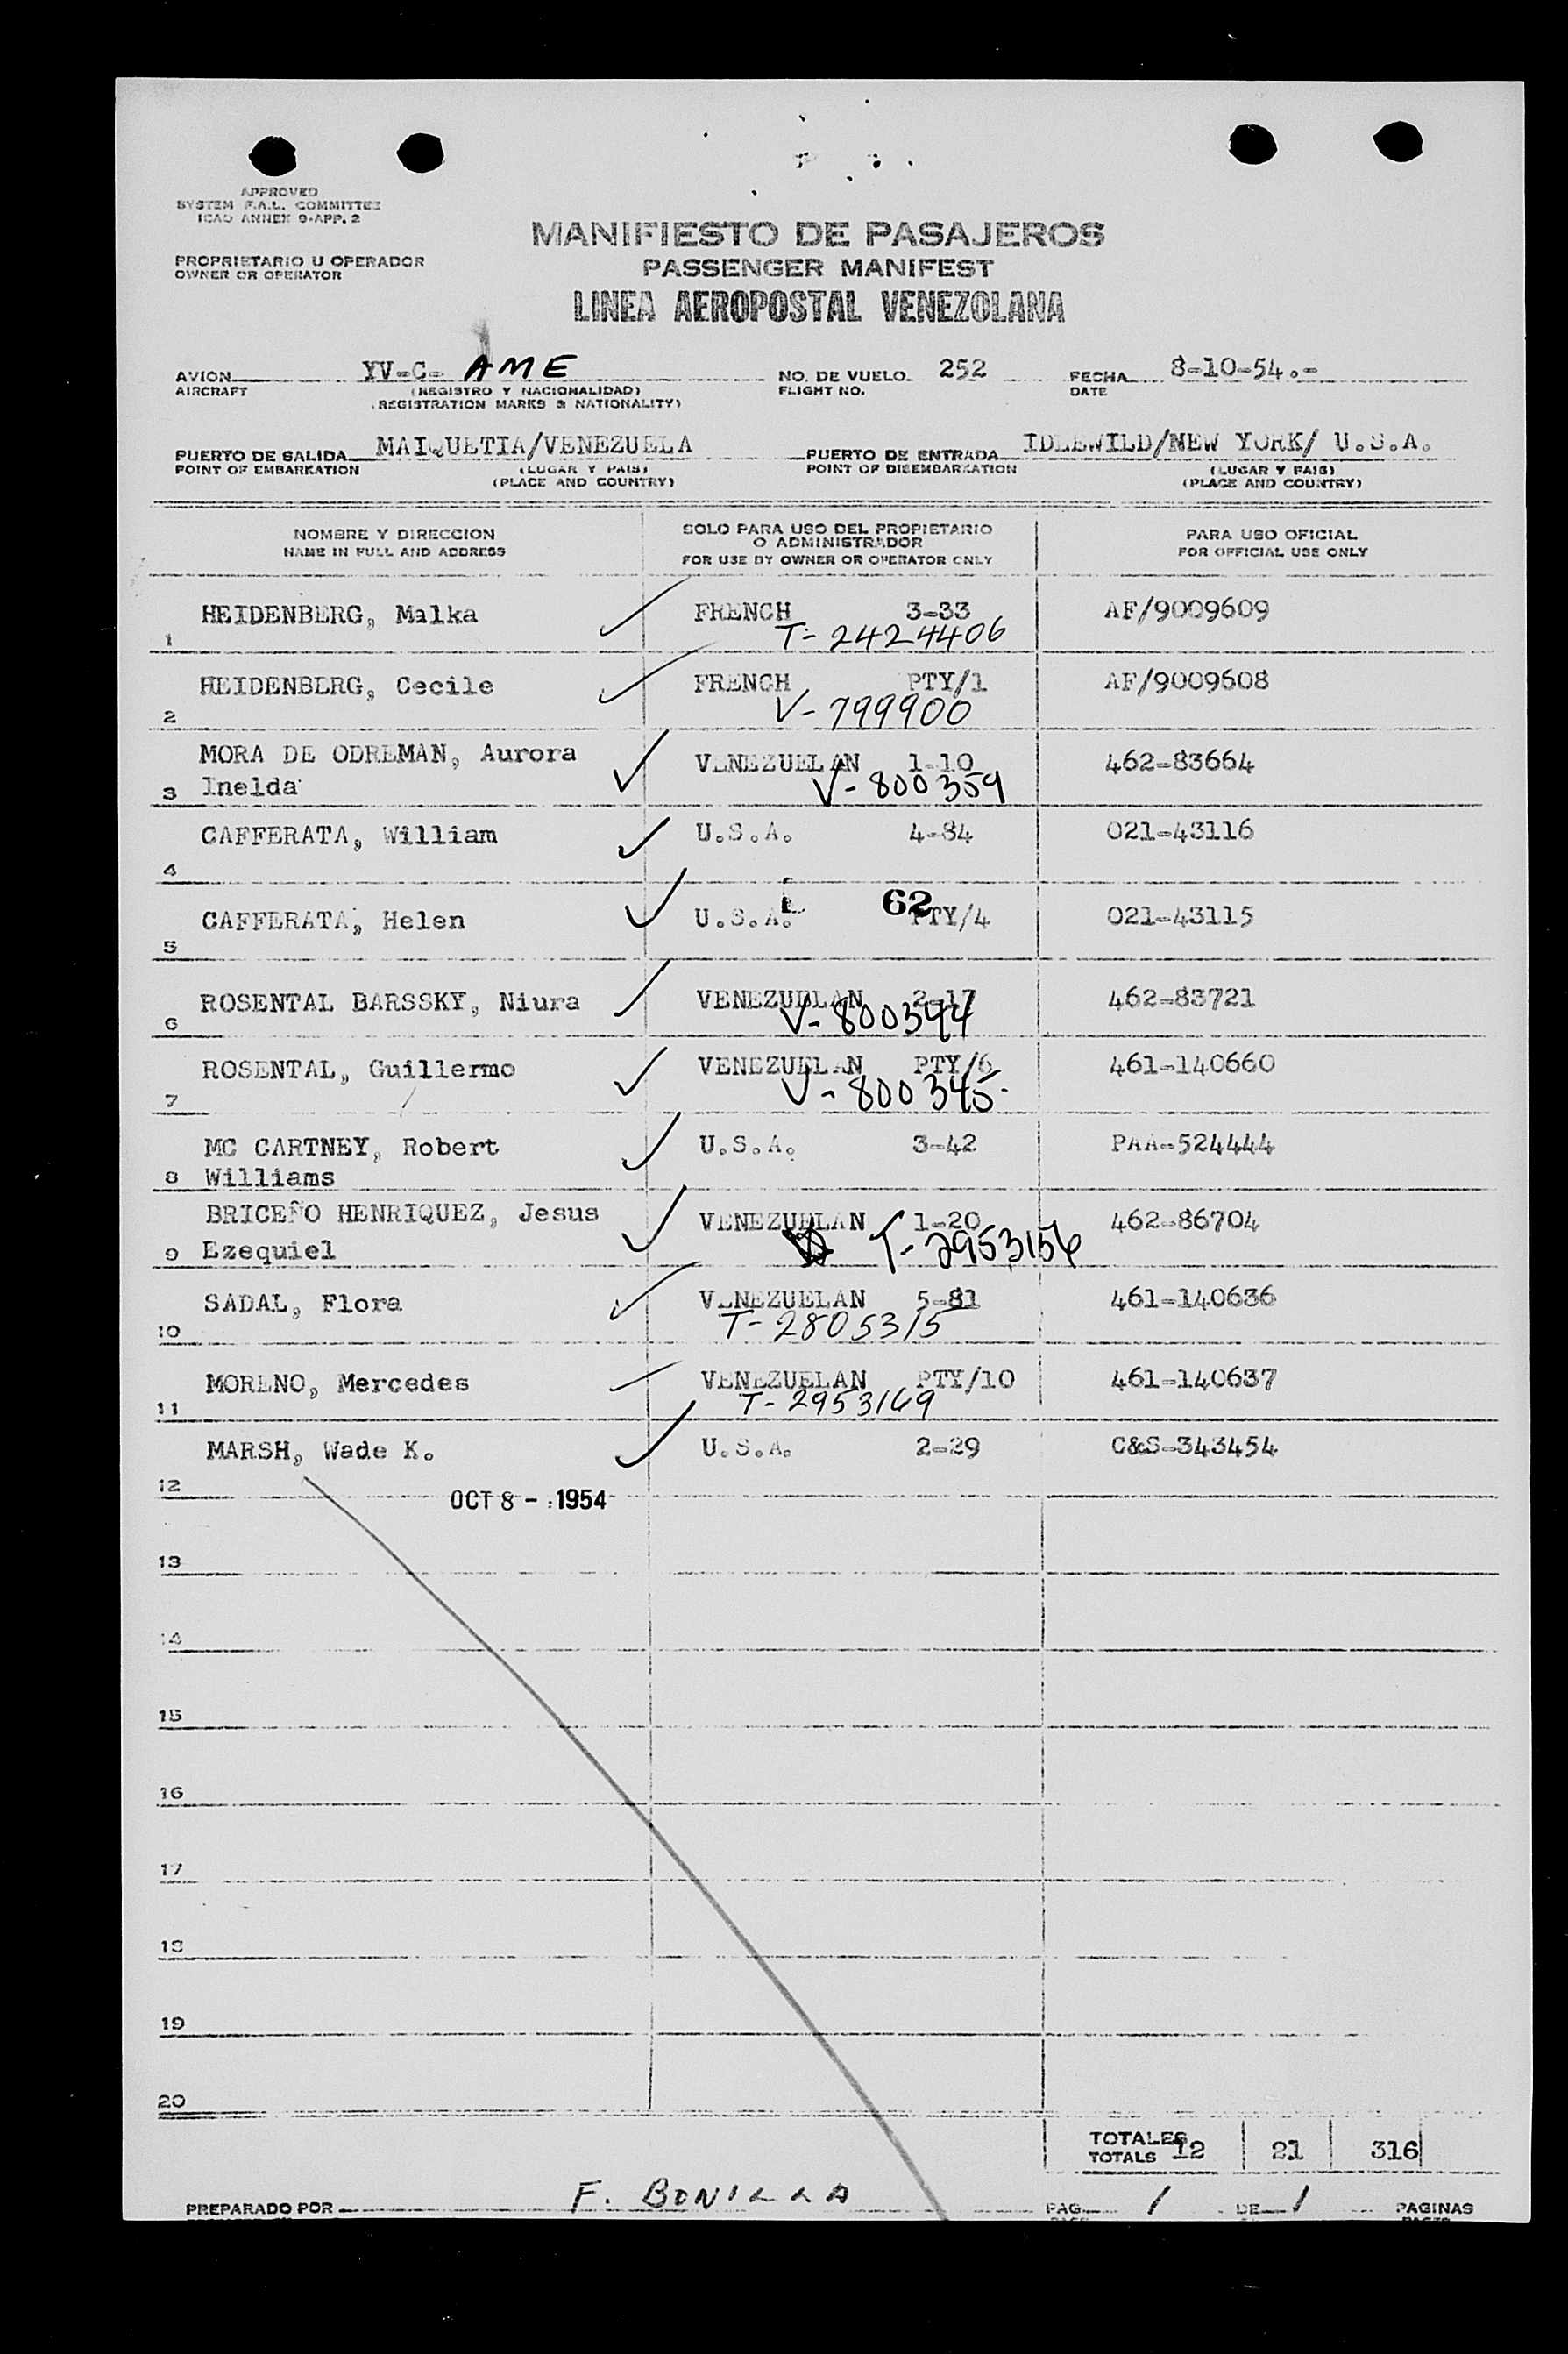 APPROVED
SYSTEM F.A.L. COMMITTEE
ICAO ANNEX 9-APP. 2
MANIFIESTO DE PASAJEROS
PROPRIETARIO U OPERADOR
OWNER OR OPERATOR
PASSENGER MANIFEST
LINEA AEROPOSTAL VENEZOLANA
AVION YV-C- AME NO. DE VUELO 252 FECHA 8-10-54.-
AIRCRAFT (REGISTRO Y NACIONALIDAD) FLIGHT NO. DATE
(REGISTRATION MARKS & NATIONALITY)
PUERTO DE SALIDA MAIQUETIA/VENEZUELA PUERTO DE ENTRADA IDLEWILD/NEW YORK/ U.S.A.
POINT OF EMBARKATION (LUGAR Y PAIS) POINT OF DISEMBARKATION (LUGAR Y PAIS)
(PLACE AND COUNTRY) (PLACE AND COUNTRY)
NOMBRE Y DIRECCION SOLO PARA USO DEL PROPIETARIO O ADMINISTRADOR PARA USO OFICIAL
NAME IN FULL AND ADDRESS FOR USE BY OWNER OR OPERATOR ONLY FOR OFFICIAL USE ONLY
HEIDENBERG, Malka FRENCH 3-33 AF/9009609
1 T- 2424406
HEIDENBERG, Cecile FRENCH PTY/1 AF/9009608
2 V-799900
MORA DE ODREMAN, Aurora VENEZUELAN 1-10 462-83664
3 Inelda V- 800359
CAFFERATA, William U.S.A. 4-84 021-43116
4
62
CAFFERATA, Helen U.S.A. PTY/4 021-43115
5
ROSENTAL BARSSKY, Niura VENEZUELAN 2-17 462-83721
6 V- 800344
ROSENTAL, Guillermo VENEZUELAN PTY/6 461-140660
7 V- 800345
MC CARTNEY, Robert U.S.A. 3-42 PAA-524444
8 Williams
BRICEÑO HENRIQUEZ, Jesus VENEZUELAN 1-20 462-86704
9 Ezequiel T- 2953156
SADAL, Flora VENEZUELAN 5-81 461-140636
10 T- 2805315
MORENO, Mercedes VENEZUELAN PTY/10 461-140637
11 T- 2953169
MARSH, Wade K. U.S.A. 2-29 C&S-343454
12
OCT 8 - 1954
13
14
15
16
17
18
19
20
TOTALES
TOTALS 12 21 316
PREPARADO POR F. BONILLA PAG. 1 DE 1 PAGINAS